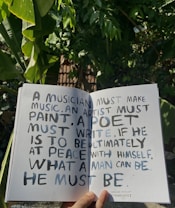 A MUSICIAN MUST MAKE
MUSIC, AN ARTIST MUST
PAINT, A POET
MUST WRITE, IF HE
IS TO BE ULTIMATELY
AT PEACE WITH HIMSELF.
WHAT A MAN CAN BE
HE MUST BE.